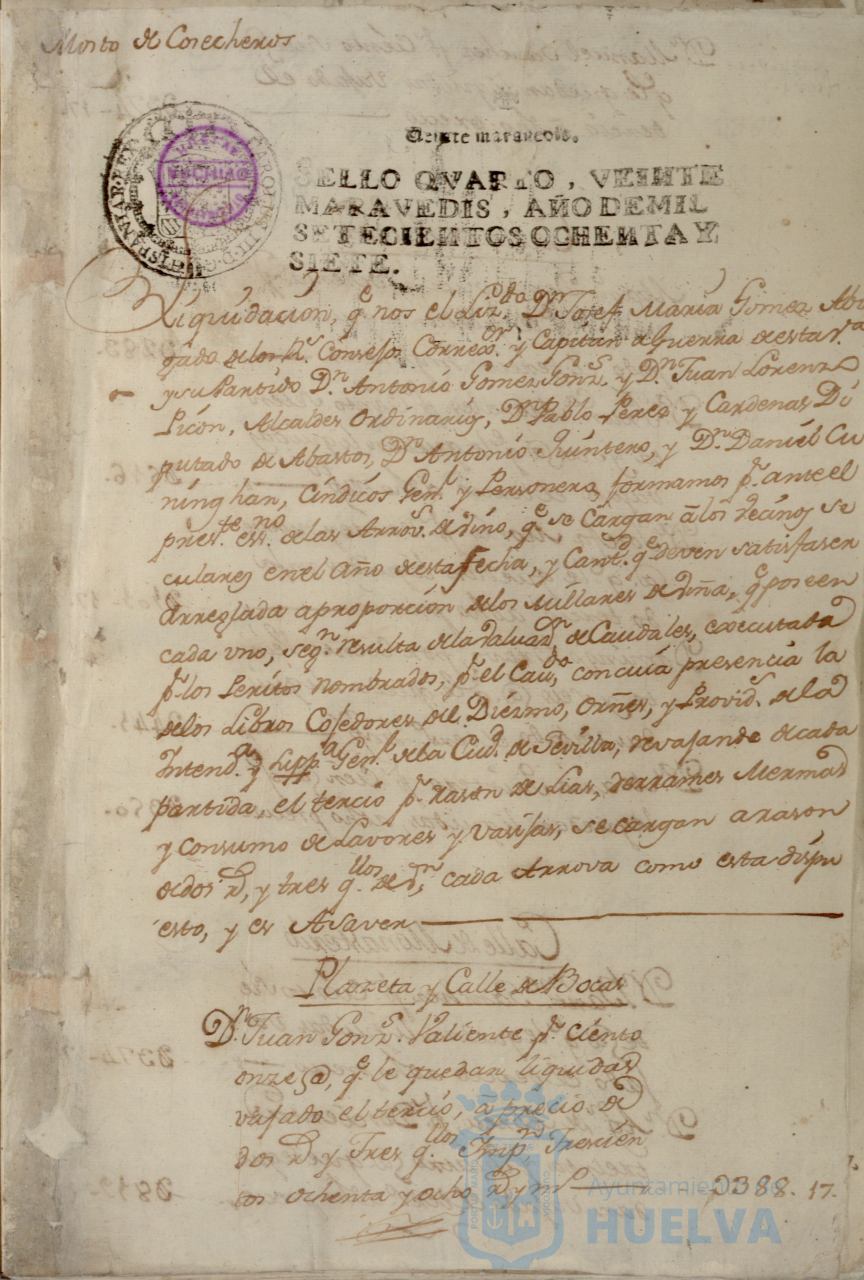 Mosto de Cosecheros
Veinte maravedis.
SELLO QVARTO, VEINTE
MARAVEDIS, AÑO DE MIL
SETECIENTOS OCHENTA Y
SIETE.
HISPANIAR. REX
CAROLUS III D. G.
ARCHIVO
Liquidacion, q.e nos el Liz.do D.n Josef Maria Gomez Abo
gado de los R.s Consejos Correx.or y Capitan a Guerra de esta V.a
y su Partido D.n Antonio Gomez Gonz.s y D.n Juan Lorenzo
Picon, Alcaldes Ordinarios, D.n Pablo Perez y Cardenas Di
putado de Abastos, D.n Antonio Quintero, y D.n Daniel Cu
ninghan, Cindicos Gen.l y Personero, formamos p.r ante el
pres.te es.no de las Arrov.s de vino, q.e se cargan à los vecinos se
culares en el Año de esta fecha, y Cant.d q.e deven satisfaser
arreglada a proporción de los Millares de viña, q.e poseen
cada vno, seg.n resulta de la valuaz.on de Caudales, executada
p.r los Peritos nombrados, p.r el Cav.do, con cuia presencia la
de los Libros Cojedores del Diezmo, orñes, y Provid.s de la
Intend.a y Supp.a Gen.l de la Ciud. de Sevilla, revajando de cada
partida, el tercio p.r rason de Lias, derrames Mermas
y consumo de Lavores y Vasijas, se cargan a rason
de dos r.s, y tres q.llos de v.n cada Arrova como esta dispu
esto, y es A saver
Plazeta y Calle de Bocas
D.n Juan Gonz.s Valiente p.r ciento
onze @, q.e le quedan liquidas
vajado el tercio, à precio de
dos r.s y Tres q.llos Imp.n Trescien
tos ochenta y ocho r.s y m.o 0388. 17.
Ayuntamiento de
HUELVA